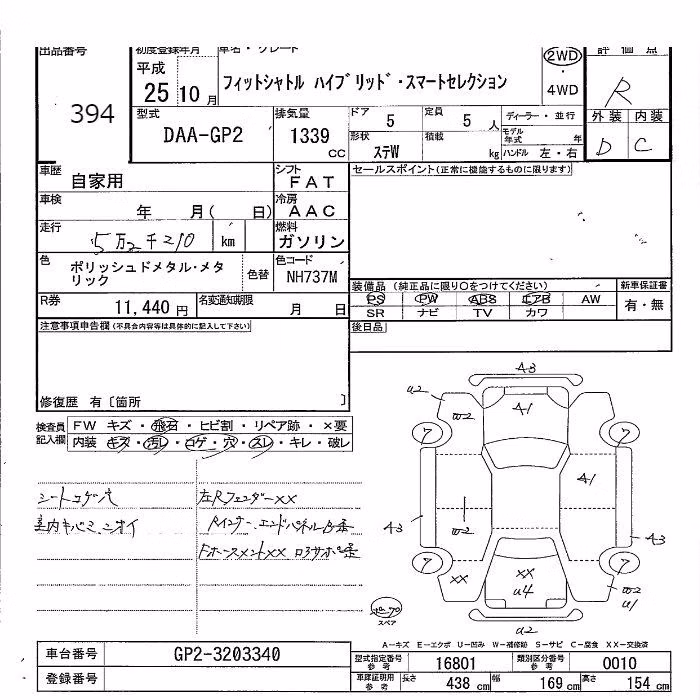 出品番号 初度登録年月 車名・グレード 2WD 評価点
394 平成 25 10月 フィットシャトル ハイブリッド・スマートセレクション ・ 4WD R
型式 排気量 ドア 定員 ディーラー・並行 外装 内装
DAA-GP2 1339 CC 5 5 人 モデル年式 年 D C
形状 積載 ステW kg ハンドル 左・右
車歴 自家用 シフト FAT セールスポイント(正常に機能するものに限ります)
車検 年 月( 日) 冷房 AAC
走行 5万2千210 km 燃料 ガソリン
色 ポリッシュドメタル・メタリック 色替 色コード NH737M
装備品 (純正品に限り○をつけてください) 新車保証書
PS PW ABS エアB AW 有・無
SR ナビ TV カワ
R券 11,440 円 名変通知期限 月 日
注意事項申告欄(不具合内容等は具体的に記入して下さい) 後日品
修復歴 有〔箇所 〕
検査員記入欄 FW キズ・飛石・ヒビ割・リペア跡・×要
内装 キズ・汚レ・コゲ・穴・スレ・キレ・破レ
シートコゲ穴 左Rフェンダーxx
室内キバミ、ニオイ Rインナー、エンドパネルB系
A3
A1
U2
W2
7
7
A1
A3
W2
A3
7
7
XX
XX
U4
W2
U1
U2
スペア
A-キズ E-エクボ U-凹み W-補修跡 S-サビ C-腐食 XX-交換済
車台番号 GP2-3203340 型式指定番号 参考 16801 類別区分番号 参考 0010
登録番号 車庫証明用 参考 長さ 438 cm 幅 169 cm 高さ 154 cm